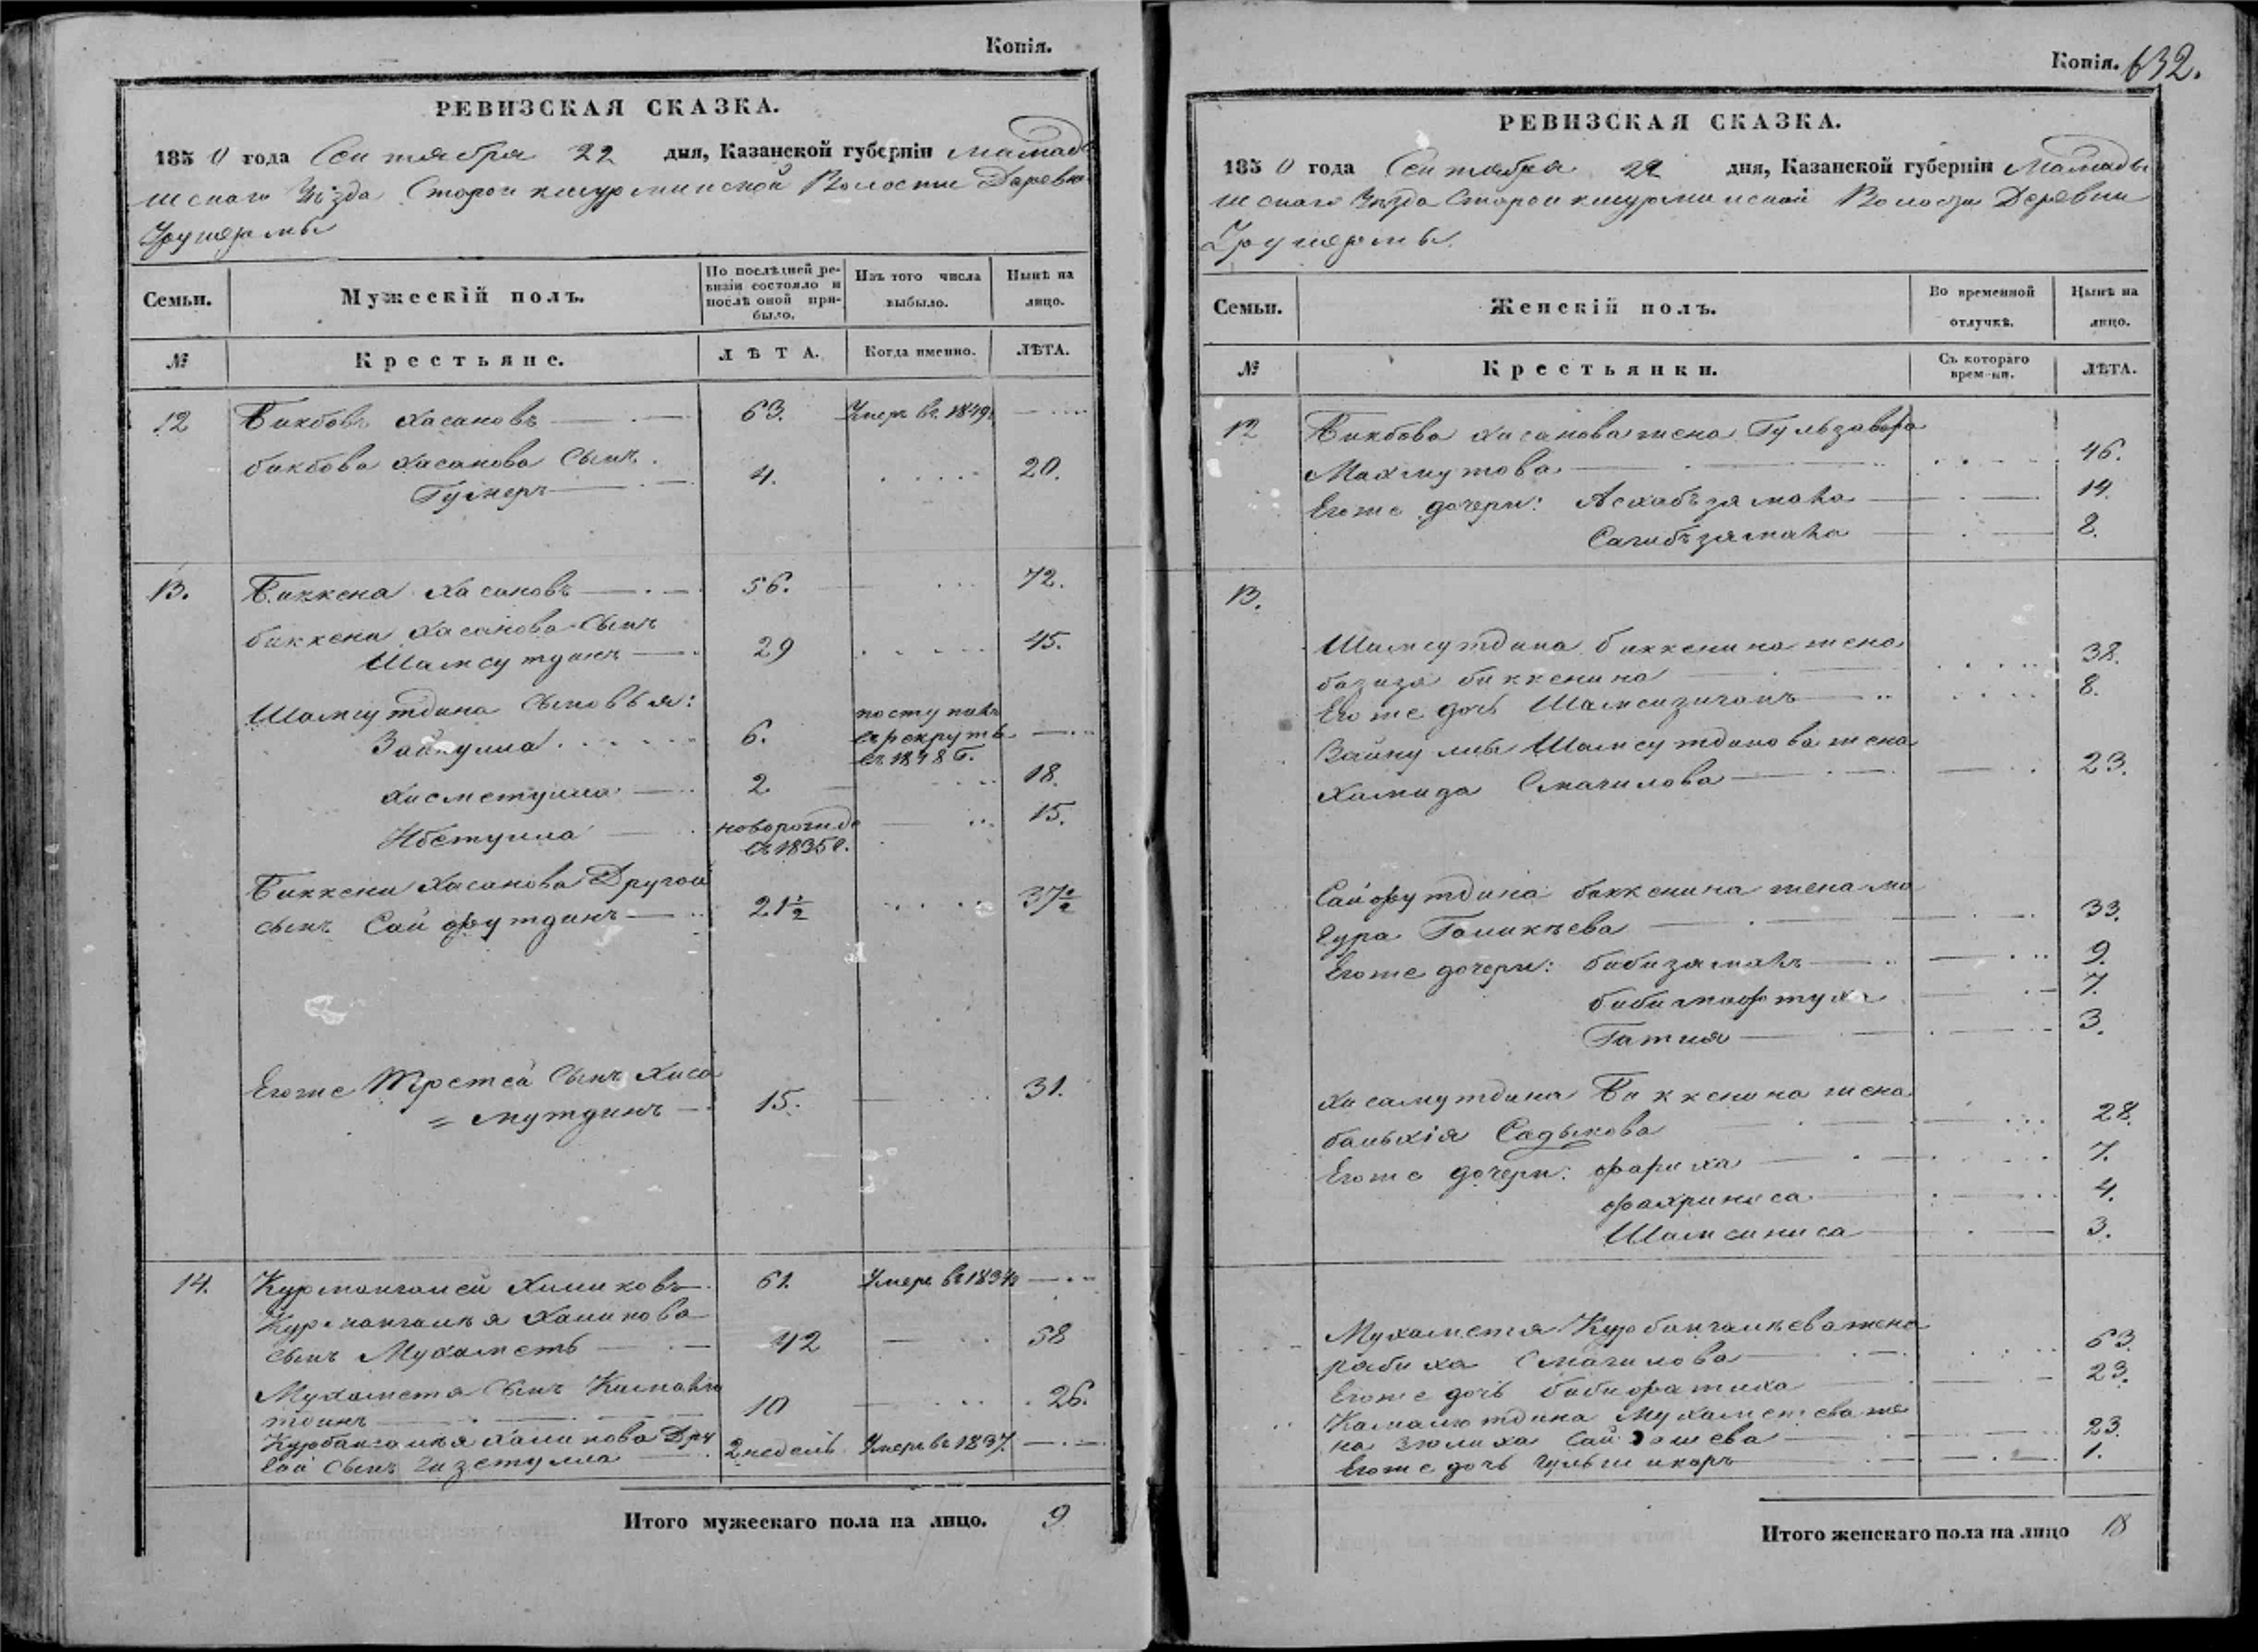 Копія.
РЕВИЗСКАЯ СКАЗКА.
1850 года Сентября 22 дня, Казанской губерніи Мамады
шскаго Уѣзда Старокшурминской Волости Деревни
Семьи. Мужескій полъ. По послѣдней ревизіи состояло и послѣ оной прибыло. Изъ того числа выбыло. Нынѣ на лицо.
№ Крестьяне. ЛѢТА. Когда именно. ЛѢТА.
12 Бикбовъ Хасановъ 63. Умеръ въ 1849
бикбова Хасанова Сынъ
Гумеръ 4. 20.
13. Биккена Хасановъ 56. 72.
биккени Хасанова Сынъ
Шамсутдинъ 29 45.
Шамсутдина Сыновья:
Зайнулла 6. поступилъ
въ рекруты
въ 1848 г.
Хисметулла 2. 18.
Ибетулла новорожде 15.
въ 1835 г.
Биккени Хасанова Другой
сынъ Сайфутдинъ 21½ 37½
Егоже Третей Сынъ Хиса
= мутдинъ 15. 31.
14. Курмангалей Халиковъ 61. Умеръ въ 1834
Курмангалея Халикова
сынъ Мухаметь 42 58
Мухаметя Сынъ Камалю
тдинъ 10 26.
Курбангалея Халикова Дру
гой Сынъ 2 недель Умеръ въ 1837
Итого мужескаго пола на лицо. 9
Копія. 632.
РЕВИЗСКАЯ СКАЗКА.
1850 года Сентября 22 дня, Казанской губерніи Мамады
шскаго Уѣзда Старокшурминской Волости Деревни
Семьи. Женскій полъ. Во временной отлучкѣ. Нынѣ на лицо.
№ Крестьянки. Съ котораго времени. ЛѢТА.
12 Бикбова Хасанова жена Гульзавфа
Махмутова 46.
Егоже дочери: Асхабъзямала 14.
Сагибъзямала 8.
13.
Шамсутдина биккенина жена
базиза биккенина 38.
Егоже дочь Шамсизиганъ 8.
Зайнуллы Шамсутдинова жена
Хамида Смагилова 23.
Сайфутдина биккенина жена ма
гура Галикѣева 33.
Егоже дочери: бибизямалъ 9.
бибимафтуха 7.
Гатия 3.
Хисамутдина Биккенина жена
балыхія Садыкова 28.
Егоже дочери: фариха 7.
фахриниса 4.
Шамсиниса 3.
Мухаметя Курбангалѣева жена
рабиха Смагилова 63.
Егоже дочь бибифатиха 23.
Камалютдина Мухаметева же
на Зюлиха 23.
Егоже дочь 1.
Итого женскаго пола на лицо 18